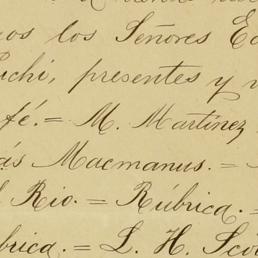 los Señores
presentes y
fé. = M. Martinez
ás Macmanus. =
Rio. = Rúbrica. =
brica. = L. H. Sco